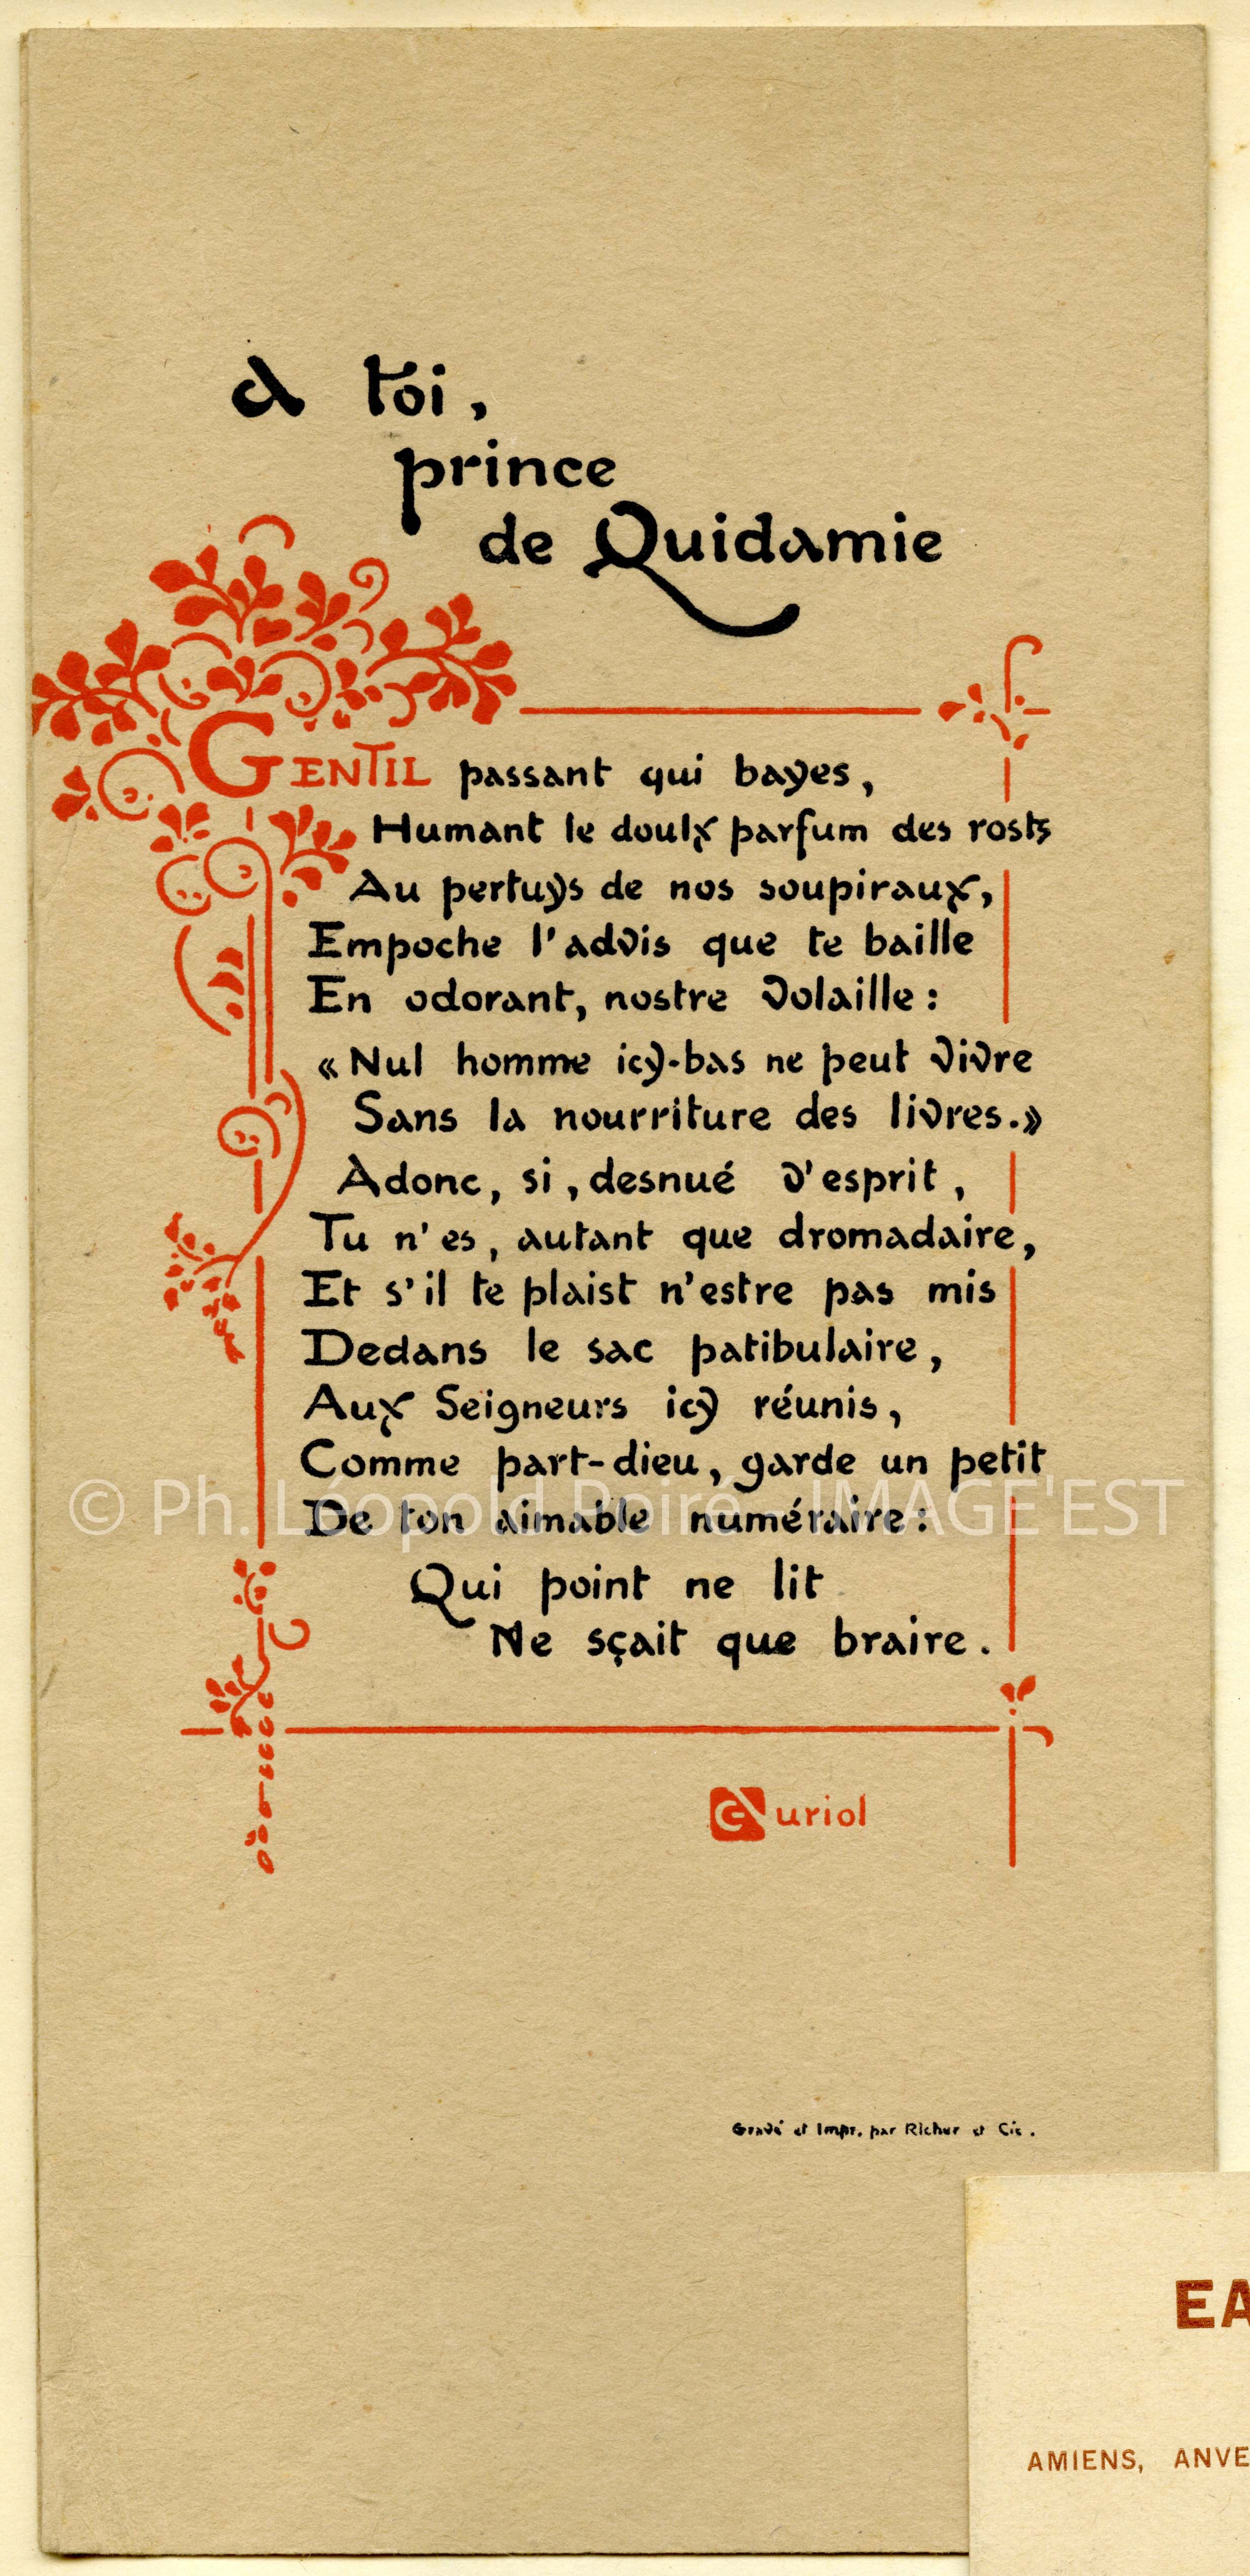 A toi,
prince
de Quidamie
GENTIL passant qui bayes,
Humant le doulx parfum des rosts
Au pertuys de nos soupiraux,
Empoche l'advis que te baille
En odorant, nostre volaille :
« Nul homme icy-bas ne peut vivre
Sans la nourriture des livres. »
Adonc, si, desnué d'esprit,
Tu n'es, autant que dromadaire,
Et s'il te plaist n'estre pas mis
Dedans le sac patibulaire,
Aux Seigneurs icy réunis,
Comme part-dieu, garde un petit
© Ph. Léopold Poiré - IMAGE'EST
De ton aimable numéraire :
Qui point ne lit
Ne sçait que braire.
Curiol
Gravé et Impr. par Richer et Cie.
EA
AMIENS, ANVE